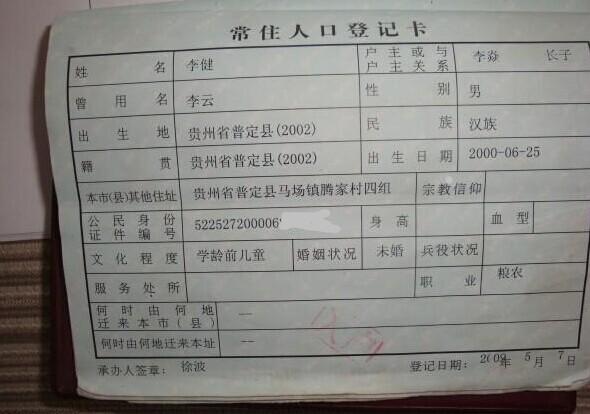 常住人口登记卡
姓名 李健 户主或与户主关系 李焱 长子
曾用名 李云 性别 男
出生地 贵州省普定县(2002) 民族 汉族
籍贯 贵州省普定县(2002) 出生日期 2000-06-25
本市(县)其他住址 贵州省普定县马场镇腾家村四组 宗教信仰
公民身份证件编号 52252720006 身高 血型
文化程度 学龄前儿童 婚姻状况 未婚 兵役状况
服务处所 职业 粮农
何时由何地迁来本市(县) --
何时由何地迁来本址 --
承办人签章: 徐波 登记日期: 2009年5月7日